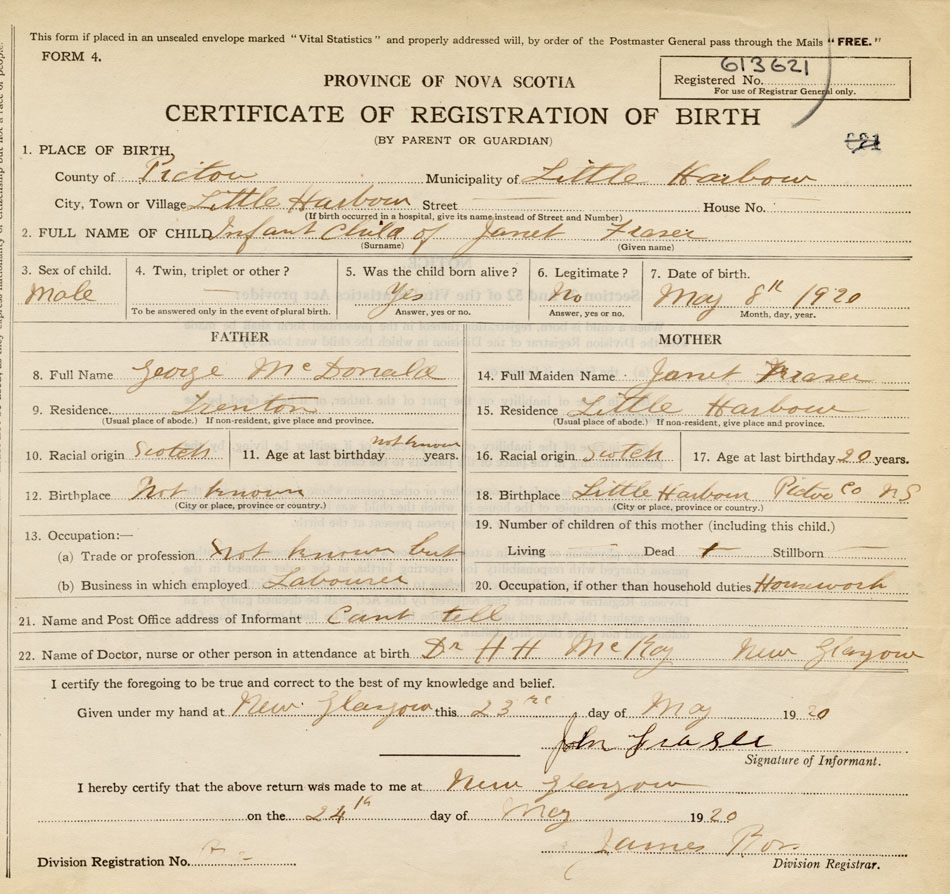 This form if placed in an unsealed envelope marked "Vital Statistics" and properly addressed will, by order of the Postmaster General pass through the Mails "FREE."
FORM 4.
613621
Registered No.
For use of Registrar General only.
PROVINCE OF NOVA SCOTIA
CERTIFICATE OF REGISTRATION OF BIRTH
(BY PARENT OR GUARDIAN)
1. PLACE OF BIRTH,
County of Pictou Municipality of Little Harbour
City, Town or Village Little Harbour Street House No.
(If birth occurred in a hospital, give its name instead of Street and Number)
2. FULL NAME OF CHILD Infant Child of Janet Fraser
(Surname) (Given name)
3. Sex of child. 4. Twin, triplet or other? 5. Was the child born alive? 6. Legitimate? 7. Date of birth.
Male Yes No May 8th 1920
To be answered only in the event of plural birth. Answer, yes or no. Answer, yes or no. Month, day, year.
FATHER MOTHER
8. Full Name George McDonald
9. Residence Trenton
(Usual place of abode.) If non-resident, give place and province.
10. Racial origin Scotch 11. Age at last birthday not known years.
12. Birthplace Not known
(City or place, province or country.)
13. Occupation:—
(a) Trade or profession not known but
(b) Business in which employed Labourer
14. Full Maiden Name Janet Fraser
15. Residence Little Harbour
(Usual place of abode.) If non-resident, give place and province.
16. Racial origin Scotch 17. Age at last birthday 20 years.
18. Birthplace Little Harbour Pictou Co NS
(City or place, province or country.)
19. Number of children of this mother (including this child.)
Living — Dead Stillborn —
20. Occupation, if other than household duties Housework
21. Name and Post Office address of Informant Cant tell
22. Name of Doctor, nurse or other person in attendance at birth Dr H H McKay New Glasgow
I certify the foregoing to be true and correct to the best of my knowledge and belief.
Given under my hand at New Glasgow this 23rd day of May 1920
John Fraser
Signature of Informant.
I hereby certify that the above return was made to me at New Glasgow
on the 24th day of May 1920
James
Division Registration No. Division Registrar.